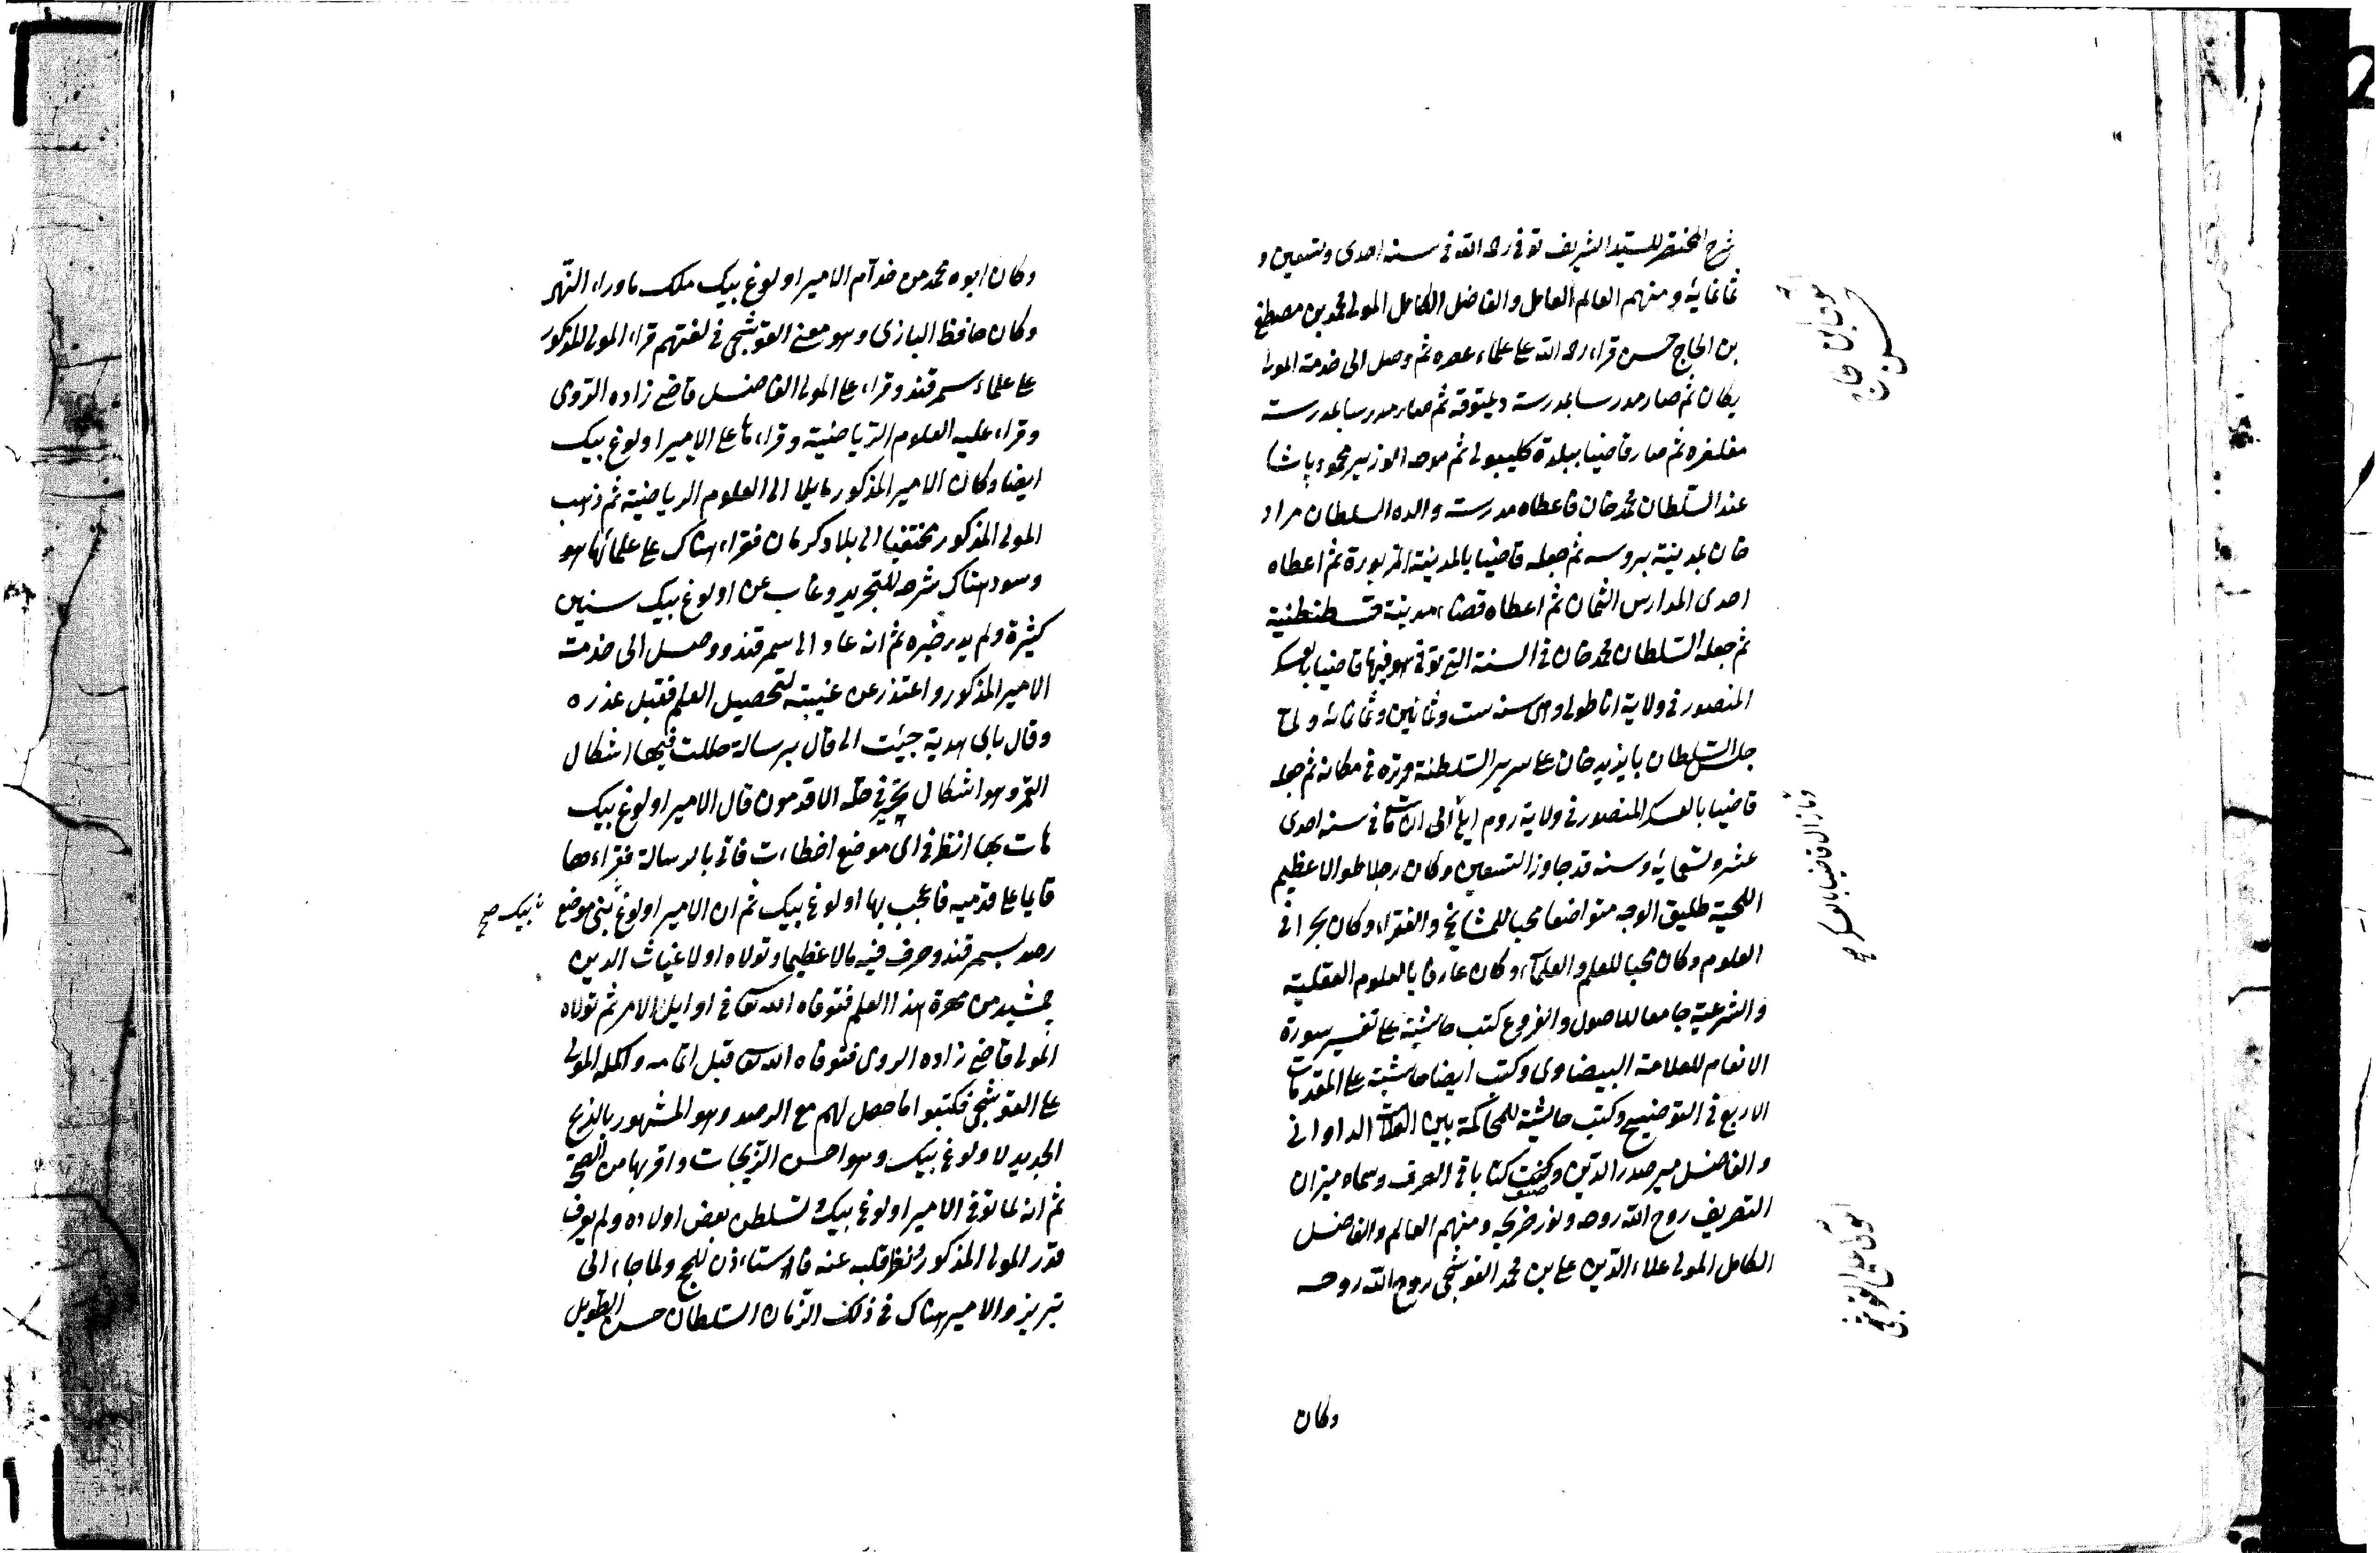 شرح المختصر للسيد الشريف توفى رحه الله فى سنه احدى وتسعين و
ثمانمائة ومنهم العالم العامل والفاضل الكامل المولى محمد بن مصطفى
بن الحاج حسن قراء رحه الله على علماء عصره ثم وصل الى خدمة المولى
يكان ثم صار مدرسا بمدرسة ديمتوقه ثم صار مدرسا بمدرسة
مغلغره ثم صار قاضيا ببلدة كليبولى ثم مدحه الوزير محمود پاشا
عند السلطان محمد خان فاعطاه مدرسة والده السلطان مراد
خان بمدينة بروسه ثم جعله قاضيا بالمدينة المزبورة ثم اعطاه
احدى المدارس الثمان ثم اعطاه قضاء مدينة قسطنطنية
ثم جعله السلطان محمد خان فى السنة التى توفى هو فيها قاضيا بالعسكر
المنصور فى ولاية اناطولى وهى سنه ست وثمانين وثمانمائة ولما
جلس السلطان بايزيد خان على سرير السلطنة قرره فى مكانه ثم جعله
قاضيا بالعسكر المنصور فى ولاية روم ايلى الى ان مات فى سنه احدى
عشر وتسعمائة وسنه قد جاوز التسعين وكان رجلا طوالا عظيم
اللحية طليق الوجه متواضعا محبا للمشايخ والفقراء وكان بحرا فى
العلوم وكان محبا للعلم والعلماء وكان عارفا بالعلوم العقلية
والشرعية جامعا للاصول والفروع كتب حاشية على تفسير سورة
الانعام للعلامة البيضاوى وكتب ايضا حاشية على المقدمات
الاربع فى التوضيح وكتب حاشية للمحاكمة بين الدوانى
والفاضل مير صدر الدين وصنف كتابا فى الصرف وسماه ميزان
التصريف روح الله روحه ونور ضريحه ومنهم العالم والفاضل
الكامل المولى علاء الدين على بن محمد القوشجى روح الله روحه
وكان
وما زال قاضيا بالعسكر صح
مولى على القوشجى
وكان ابوه محمد من خدام الامير اولوغ بيك ملك ماوراء النهر
وكان حافظ البازى وهو معنى القوشجى فى لغتهم قراء المولى المذكور
على علماء سمرقند وقراء على المولى الفاضل قاضى زاده الرومى
وقراء عليه العلوم الرياضية وقراءها على الامير اولوغ بيك
ايضا وكان الامير المذكور مايلا الى العلوم الرياضية ثم ذهب
المولى المذكور مختفيا الى بلاد كرمان فقراء هناك على علمائها هو
وسود هناك شرحه للتجريد وغاب عن اولوغ بيك سنين
كثيرة ولم يدر خبره ثم انه عاد الى سمرقند ووصل الى خدمت
الامير المذكور واعتذر عن غيبته لتحصيل العلم فقبل عذره
وقال باى هدية جيئت الى قال برسالة حللت فيها اشكال
القمر وهو اشكال تحير فى حله الاقدمون قال الامير اولوغ بيك
هات بها انظر فى اى موضع اخطاءت فاتى بالرسالة فقراءها
قايما على قدميه فاعجب بها اولوغ بيك ثم ان الامير اولوغ بنى موضع
بيك صح
رصد بسمرقند وصرف فيه مالا عظيما وتولاه اولا غياث الدين
جمشيد من مهرة هذا العلم فتوفاه الله تعا فى اوايل الامر ثم تولاه
المولى قاضى زاده الرومى فتوفاه الله تعا قبل اتمامه واكمله المولى
على القوشجى فكتبوا ما حصل لهم مع الرصد وهو المشهور بالزيج
الجديد لاولوغ بيك وهو احسن الزيجات واقربها من الصحة
ثم انه لما توفى الامير اولوغ بيك وتسلطن بعض اولاده ولم يعرف
قدر المولى المذكور ونفر قلبه عنه فاستاءذن للحج ولما جاء الى
تبريز والامير هناك فى ذلك الزمان السلطان حسن الطويل